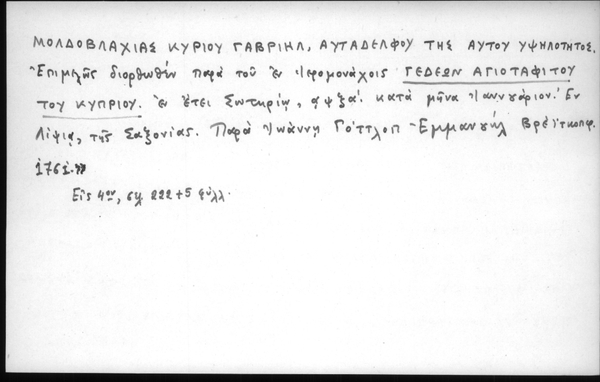 ΜΟΛΔΟΒΛΑΧΙΑΣ ΚΥΡΙΟΥ ΓΑΒΡΙΗΛ, ΑΥΤΑΔΕΛΦΟΥ ΤΗΣ ΑΥΤΟΥ ΥΨΗΛΟΤΗΤΟΣ.
Ἐπιμελῶς διορθωθὲν παρὰ τοῦ ἐν Ἱερομονάχοις ΓΕΔΕΩΝ ΑΓΙΟΤΑΦΙΤΟΥ
ΤΟΥ ΚΥΠΡΙΟΥ. ἐν ἔτει Σωτηρίῳ, αψξα΄. κατὰ μῆνα Ἰαννουάριον. Ἐν
Λίψιᾳ, τῆς Σαξονίας. Παρὰ Ἰωάννῃ Γόττλοπ Ἐμμανουὴλ Βρέϊτκοπφ.
1761.»
Εἰς 4ον, σχ. 222+5 φύλλ.